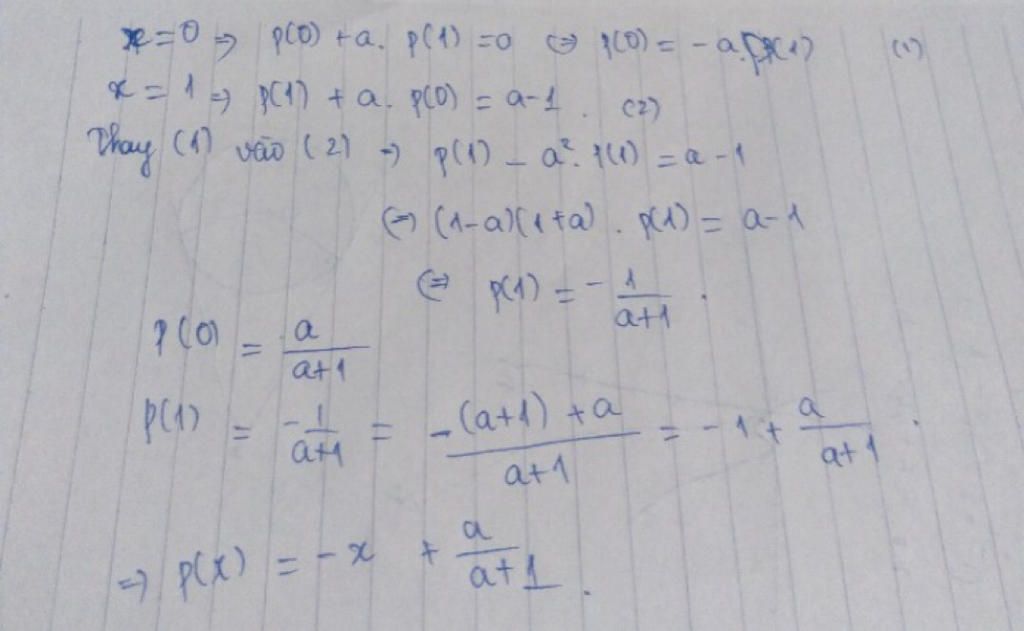 x = 0 ⇒ p(0) + a. p(1) = 0 ⇔ p(0) = - a. p(1) (1)
x = 1 ⇒ p(1) + a. p(0) = a - 1. (2)
Thay (1) vào (2) ⇒ p(1) - a². p(1) = a - 1
⇔ (1-a)(1+a). p(1) = a - 1
⇔ p(1) = - 1/(a+1).
p(0) = a/(a+1)
p(1) = -1/(a+1) = (-(a+1) + a)/(a+1) = - 1 + a/(a+1).
⇒ p(x) = - x + a/(a+1).